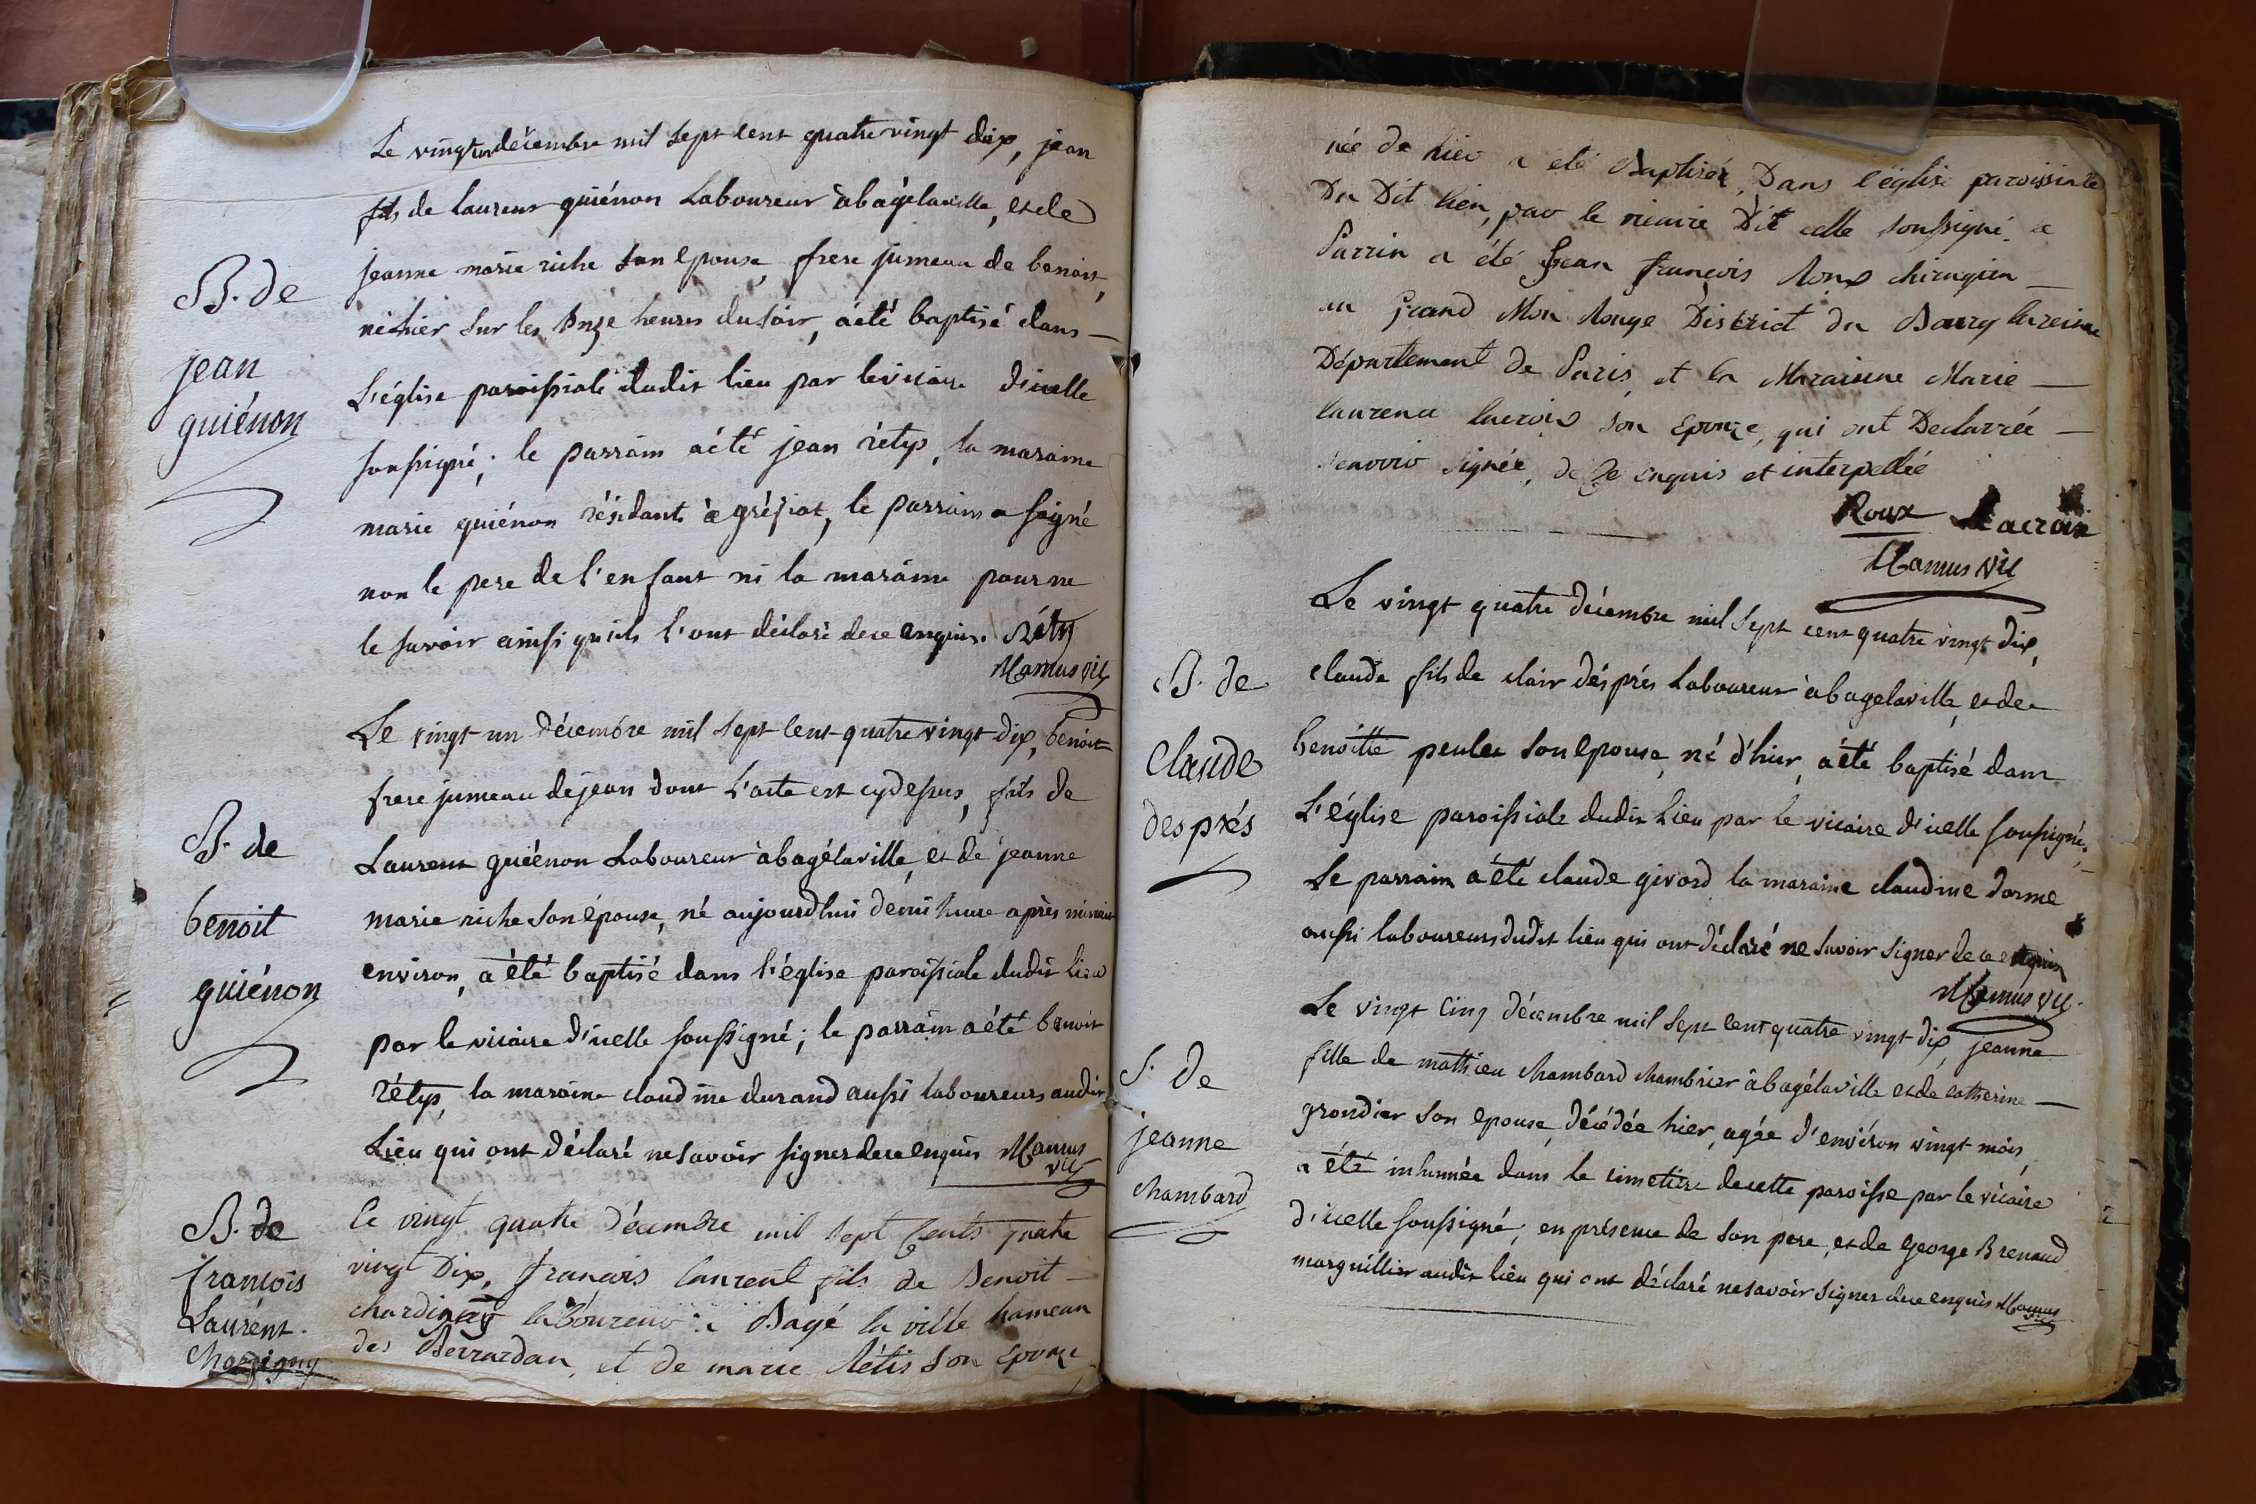 B. de
jean
guiénon
Le vingt un décembre mil sept cent quatre vingt dix, jean
fils de laurent guiénon Laboureur à bagélaville, et de
jeanne marie riche son epouse, frere jumeau de benoit,
né hier sur les onze heures du soir, a été baptisé dans
L'église paroissiale dudit lieu par le vicaire d'icelle
soussigné; le parrain a été jean rétyx, la maraine
marie guiénon résidants à gréziat, le parrain a signé
non le pere de l'enfant ni la maraine pour ne
le savoir ainsi qu'ils l'ont déclaré de ce enquis. Réty
Mamus vic
B. de
benoit
guiénon
Le vingt un décembre mil sept cent quatre vingt dix, benoit
frere jumeau de jean dont l'acte est cy dessus, fils de
Laurent guiénon Laboureur à bagélaville, et de jeanne
marie riche son épouse, né aujourdhui demi heure après minuit
environ, a été baptisé dans l'église paroissiale dudit lieu
par le vicaire d'icelle soussigné; le parrain a été benoit
rétyx, la maraine claudine durand aussi laboureurs audit
Lieu qui ont déclaré ne savoir signer de ce enquis Mamus
vic
B. de
francois
Laurent
Chardigny
Ce vingt quatre Décembre mil sept Cents quatre
vingt Dix, francois laurent fils de Benoit
chardigny laboureur a Bagé la ville hameau
des Berrardan, et de marie Rétis son Epouze
née de hier a eté Baptisée, Dans l'église paroissialle
Du Dit lien, par le vicaire Dit celle soussigné. le
Parrin a été Jean françois Roux chirugien
au grand Mon Rouge District du Bourg la reinne
Département de Paris, et la Marainne Marie
laurence lacroix son Epouze, qui ont Declarrée
scavoir signée, de Ce enquis et interpellée
Roux Lacroix
Mamus vic
B. de
Claude
després
Le vingt quatre décembre mil sept cent quatre vingt dix,
claude fils de clair després Laboureur à bagelaville, et de
benoitte peulet son epouse, né d'hier, a été baptisé dans
L'église paroissiale dudit Lieu par le vicaire d'icelle soussigné;
Le parrain a été claude givord la maraine claudine dorme
aussi laboureurs dudit lieu qui ont déclaré ne savoir signer de ce enquis
Mamus vic.
S. de
jeanne
chambard
Le vingt cinq décembre mil sept cent quatre vingt dix, jeanne
fille de mathieu chambard chambrier à bagélaville et de catherine
grondier son epouse, décédée hier, agée d'environ vingt mois,
a été inhumée dans le cimetiere de cette paroisse par le vicaire
d'icelle soussigné, en présence de son pere, et de george Brenaud
marguillier audit lieu qui ont déclaré ne savoir signer de ce enquis Mamus
vic